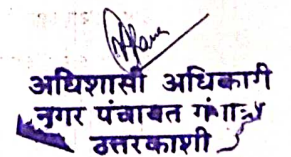 अधिशासी अधिकारी
नगर पंचायत
उत्तरकाशी